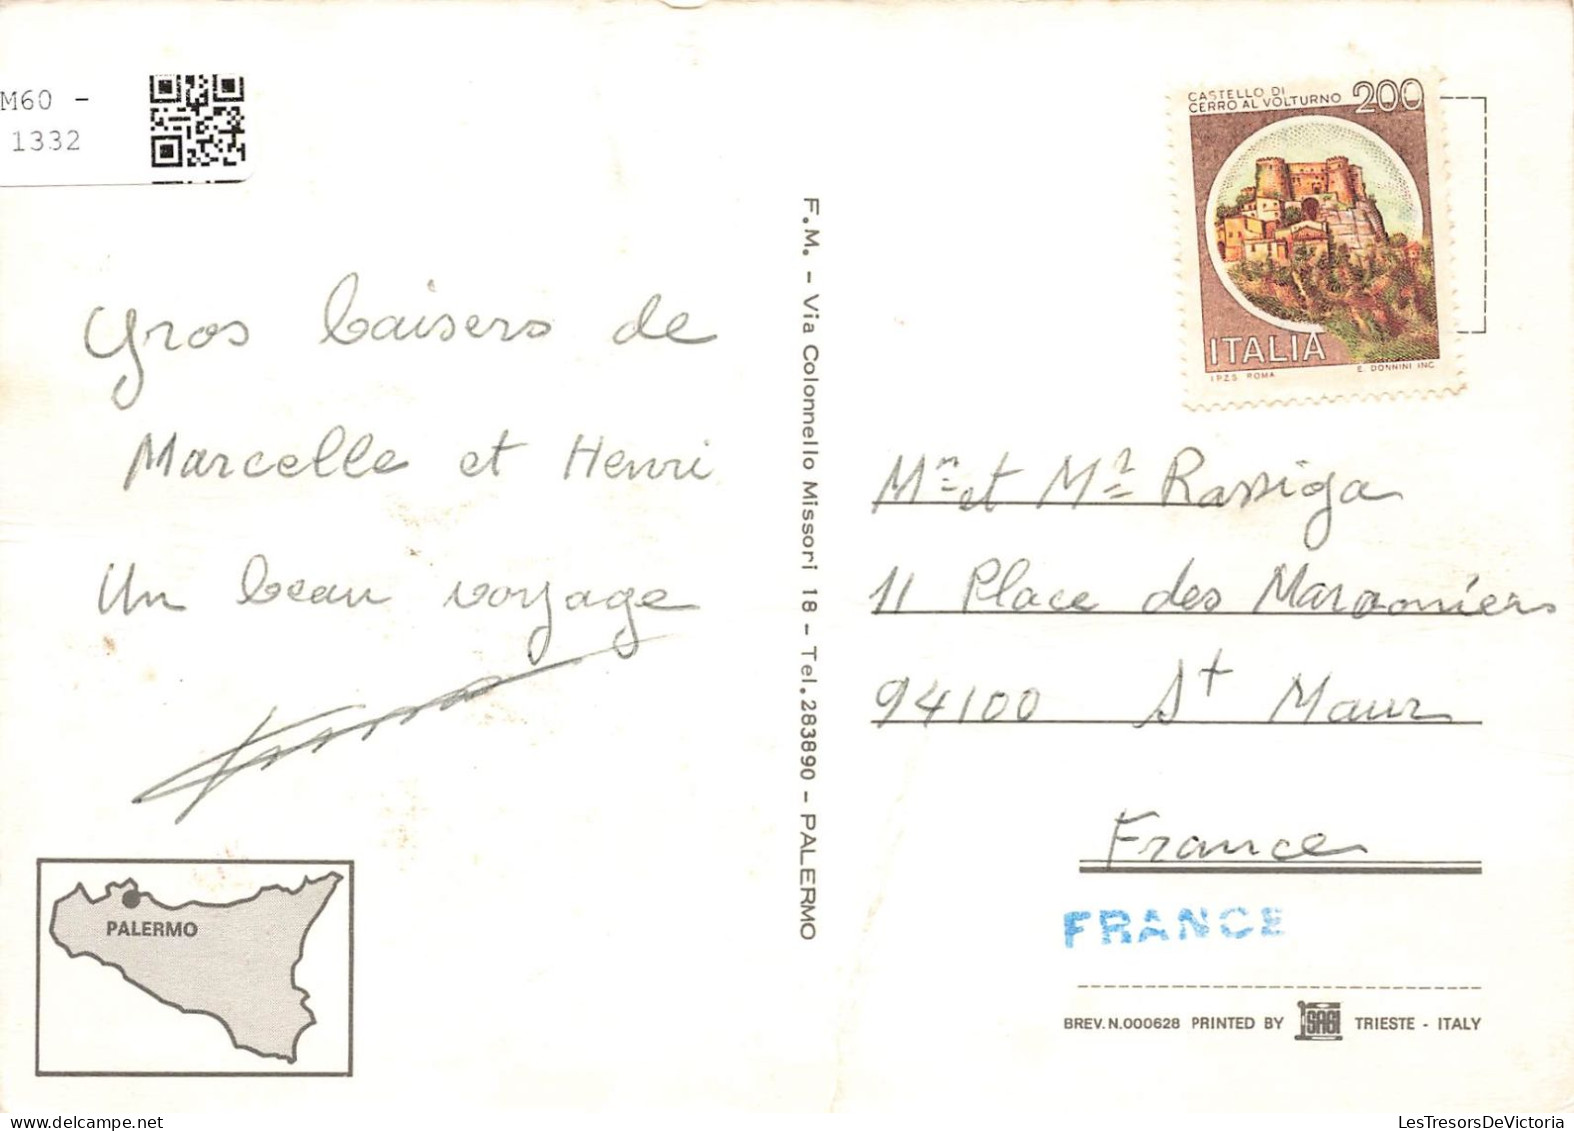 M60 -
1332
CASTELLO DI
CERRO AL VOLTURNO 200
ITALIA
I.P.Z.S. ROMA E. DONNINI INC.
Gros baisers de
Marcelle et Henri
Un beau voyage
F.M. - Via Colonnello Missori 18 - Tel. 283890 - PALERMO
Mm et Mr Rassiga
11 Place des Marronniers
94100 St Maur
France
FRANCE
PALERMO
BREV. N.000628 PRINTED BY SAGI TRIESTE - ITALY
LesTresorsDeVictoria.com